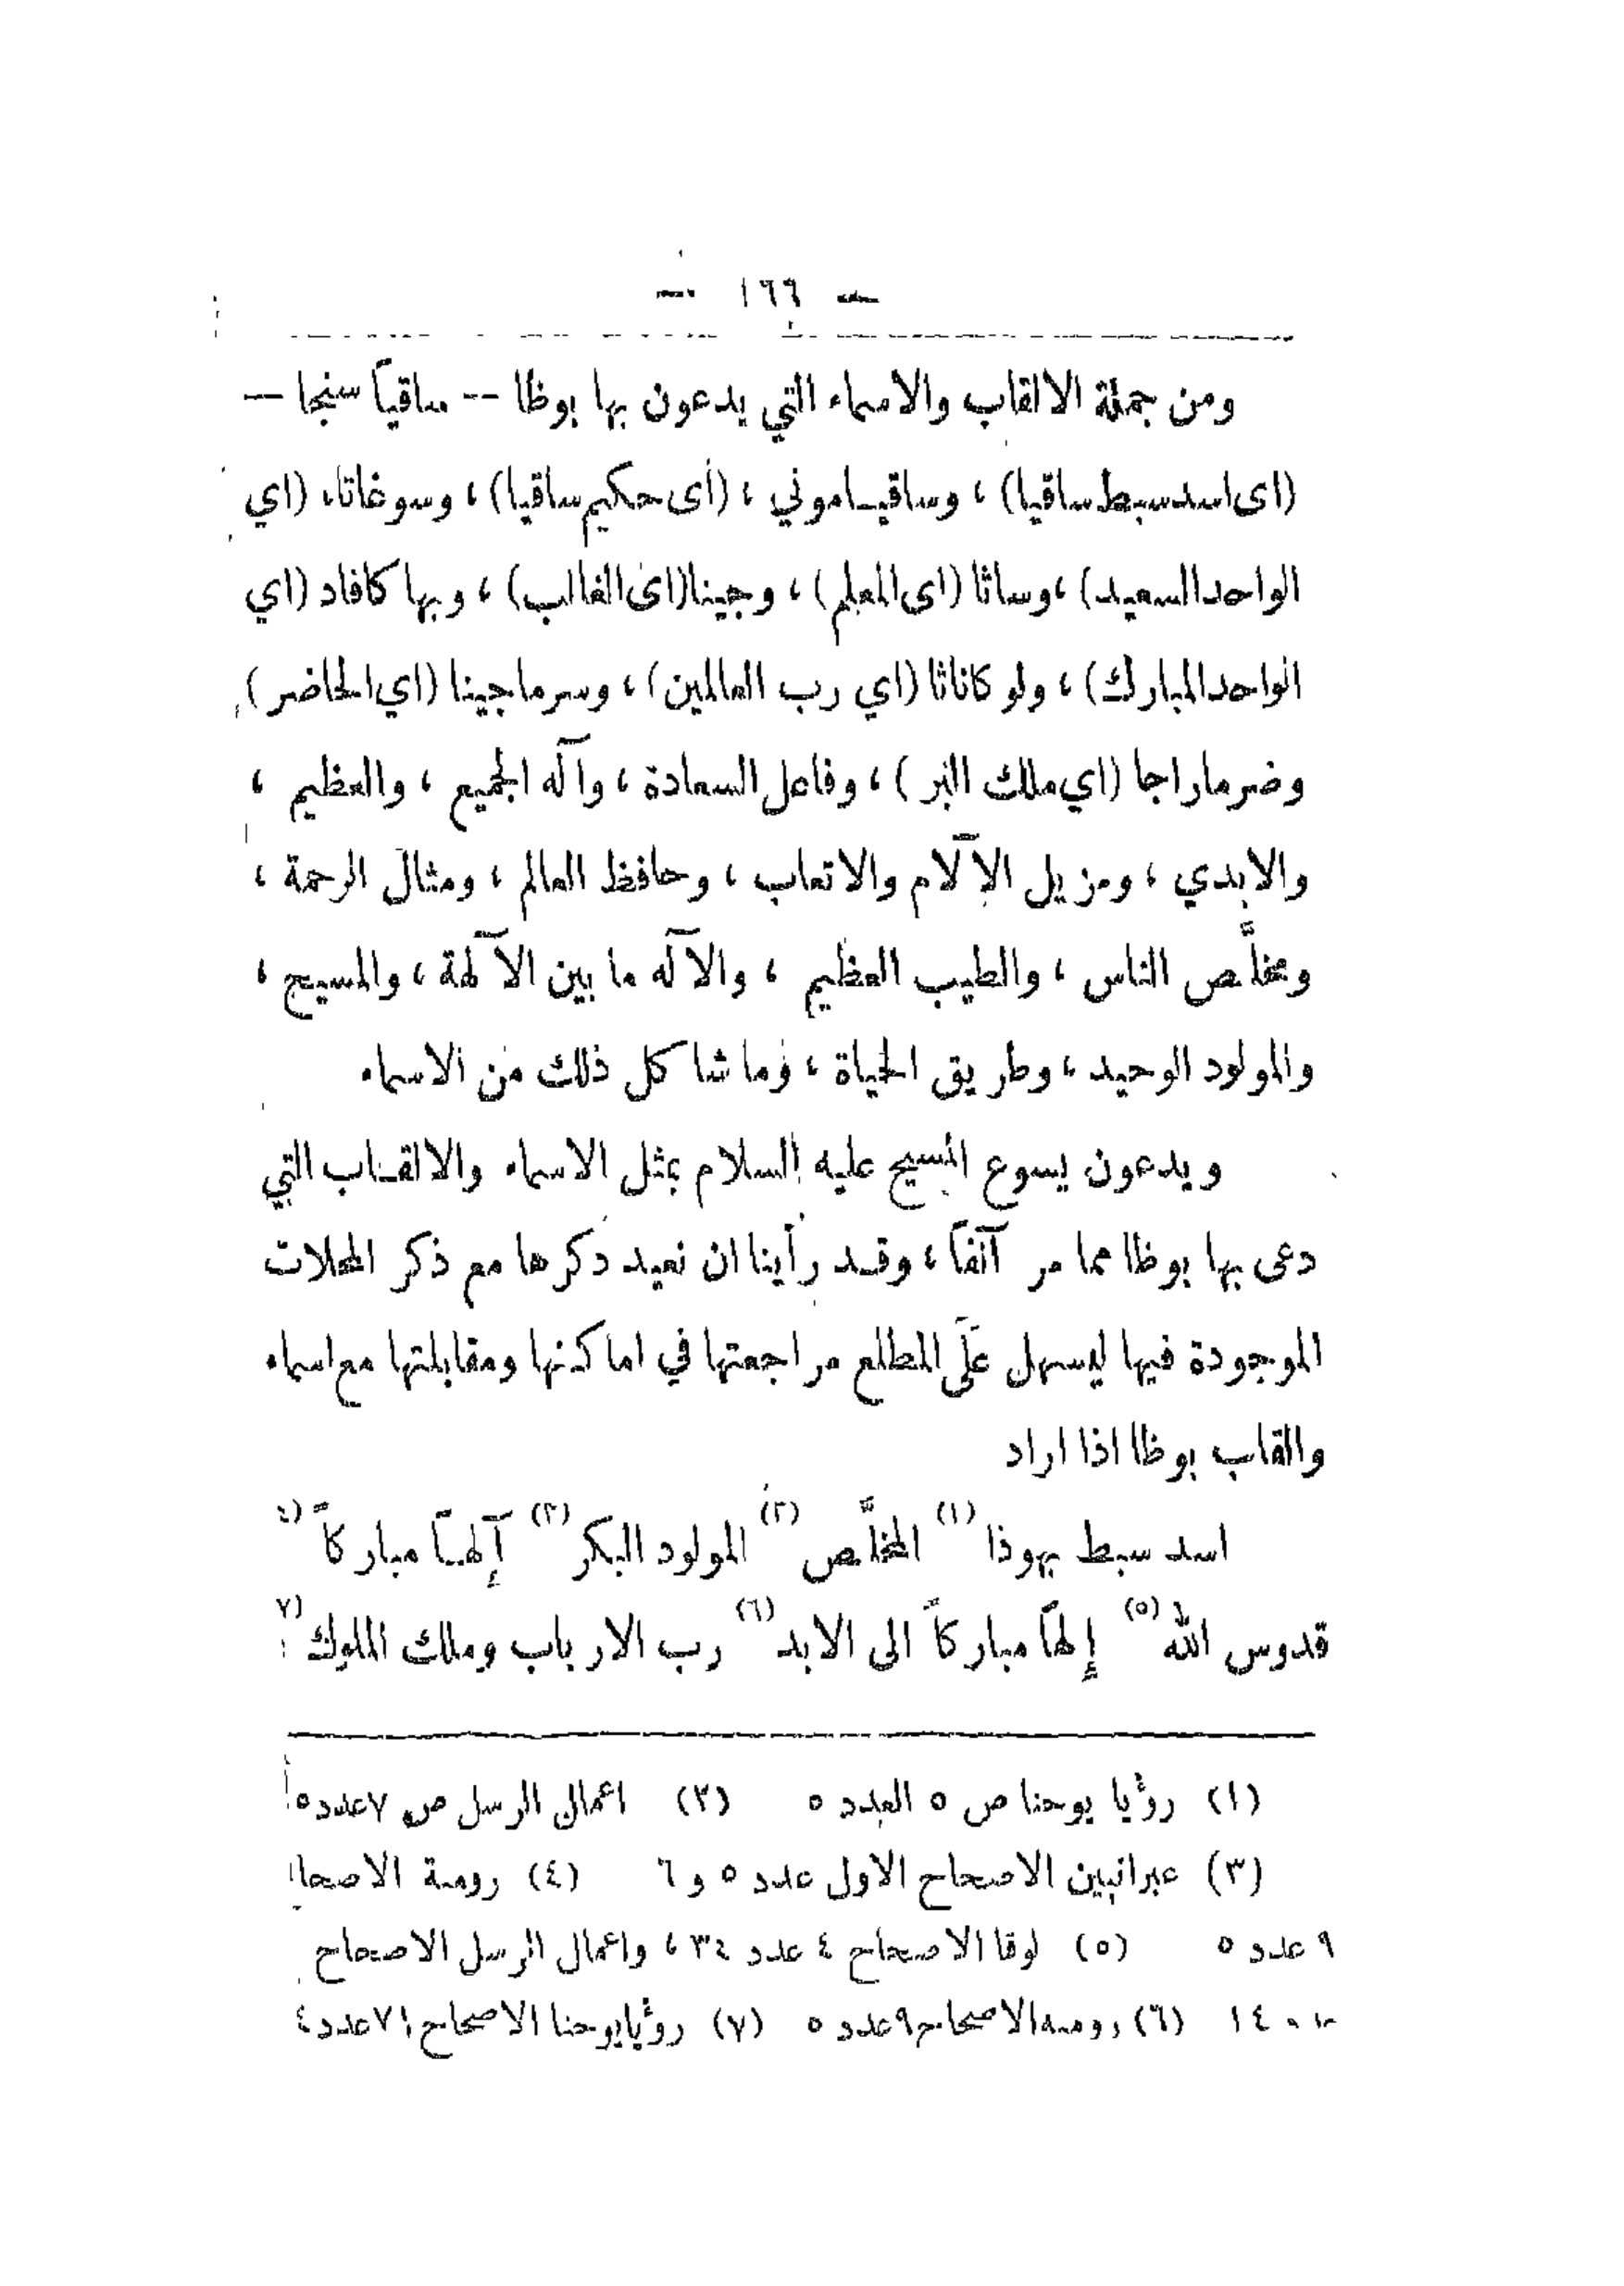 — ١٦٦ —
ومن جملة الالقاب والاسماء التي يدعون بها بوظا -- ساقياً سنجا —
(اى اسد سبط ساقيا) ، وساقياموني ، (أى حكيم ساقيا) ، وسوغاتا، (اي
الواحد السعيد) ، وساثا (اى المعلم) ، وجينا (اى الغالب) ، وبها كافاد (اي
الواحد المبارك) ، ولو كاناثا (اي رب العالمين) ، وسرماجينا (اي الحاضر) ,
وضرماراجا (اي ملك البر ) ، وفاعل السعادة ، وآله الجميع ، والعظيم ،
والابدي ، ومزيل الآلام والاتعاب ، وحافظ العالم ، ومثال الرحمة ،
ومخلّص الناس ، والطيب العظيم ، والآله ما بين الآلهة ، والمسيح ،
والمولود الوحيد ، وطريق الحياة ، وما شاكل ذلك من الاسماء
ويدعون يسوع المسيح عليه السلام بمثل الاسماء والالقاب التي
دعى بها بوظا مما مر آنفاً ، وقد رأينا ان نعيد ذكرها مع ذكر المحلات
الموجودة فيها ليسهل عَلَى المطلع مراجعتها في اماكنها ومقابلتها مع اسماء
والقاب بوظا اذا اراد
اسد سبط يهوذا (١) المخلّص (٢) المولود البكر (٣) آلهاً مباركاً (٤
قدوس الله (٥) إلهاً مباركاً الى الابد (٦) رب الارباب وملك الملوك (٧
(١) رؤيا يوحنا ص ٥ العدد ٥ (٢) اعمال الرسل ص ٧ عدد ٥
(٣) عبرانيين الاصحاح الاول عدد ٥ و ٦ (٤) رومية الاصحا
٩ عدد ٥ (٥) لوقا الاصحاح ٤ عدد ٣٤ ، واعمال الرسل الاصحاح
١٤ (٦) رومية الاصحاح ٩ عدد ٥ (٧) رؤيا يوحنا الاصحاح ١٧ عدد ٤